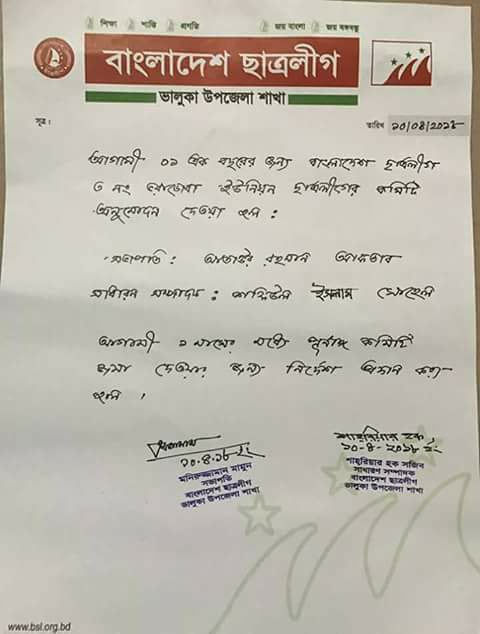 শিক্ষা শান্তি প্রগতি জয় বাংলা জয় বঙ্গবন্ধু
বাংলাদেশ ছাত্রলীগ
ভালুকা উপজেলা শাখা
সূত্র : তারিখ ১০/০৪/২০১৮
আগামী ০১ এক বছরের জন্য বাংলাদেশ ছাত্রলীগ
৩ নং ইউনিয়ন ছাত্রলীগের কমিটি
অনুমোদন দেওয়া হল :
সভাপতি : রহমান
সাধারন সম্পাদক : ইসলাম সোহেল
আগামী ১ মাসের মধ্যে পূর্ণাঙ্গ কমিটি
জমা দেওয়ার জন্য নির্দেশ প্রদান করা
হল ।
১০.৪.১৮ ইং
মনিরুজ্জামান মামুন
সভাপতি
বাংলাদেশ ছাত্রলীগ
ভালুকা উপজেলা শাখা
শাহরিয়ার হক
১০-৪-২০১৮ ইং
শাহরিয়ার হক সজিব
সাধারণ সম্পাদক
বাংলাদেশ ছাত্রলীগ
ভালুকা উপজেলা শাখা
www.bsl.org.bd